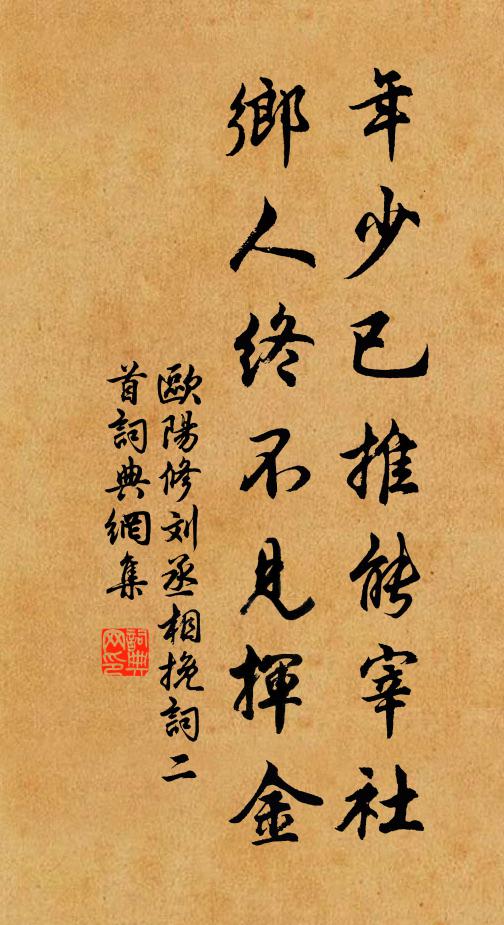 年少已推能宰社
鄉人終不見揮金
歐陽修刘丞相挽詞二
首詞典網集
詞典
网印